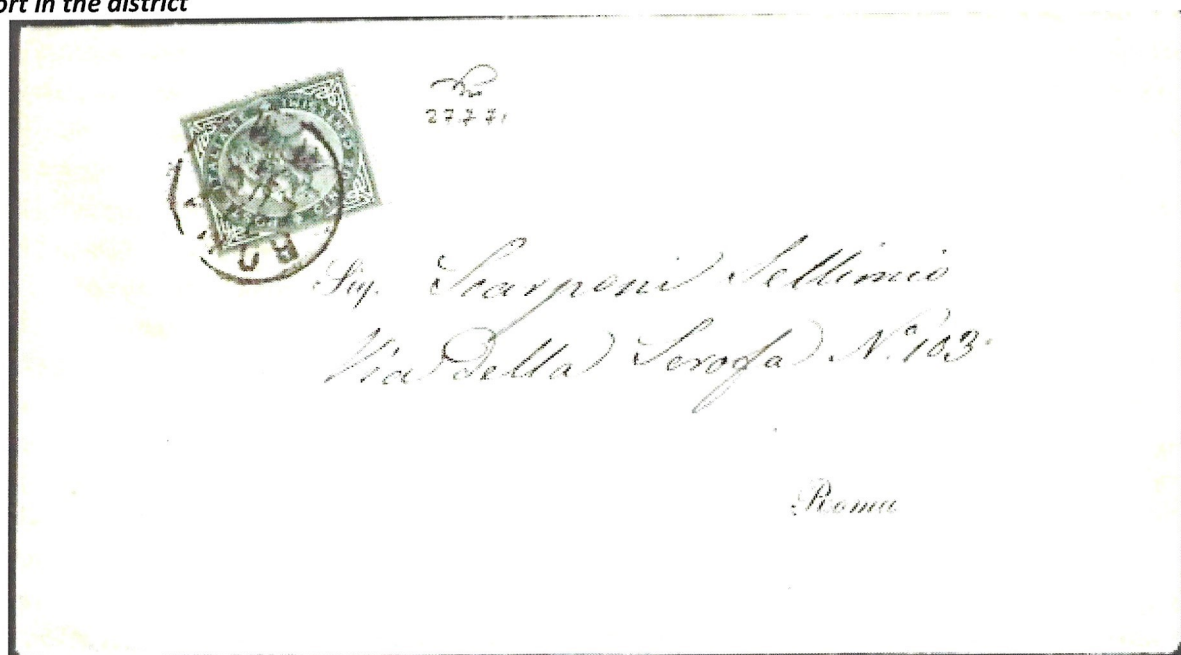 ort in the district
27.7.71
Sig. Scarponi Settimio
Via Della Scrofa N.º 103
Roma